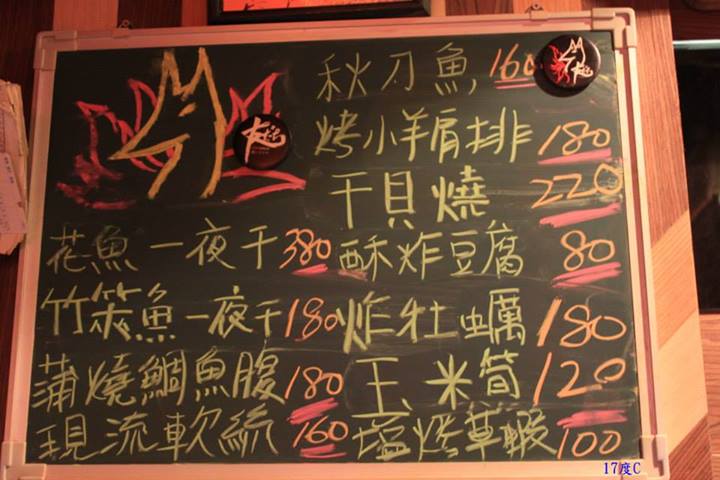 秋刀魚 160
烤小羊肩排 180
干貝燒 220
花魚一夜干 380
酥炸豆腐 80
竹筴魚一夜干 180
炸牡蠣 180
蒲燒鯛魚腹 180
玉米筍 120
現流軟絲 160
塩烤草蝦 100
17度C